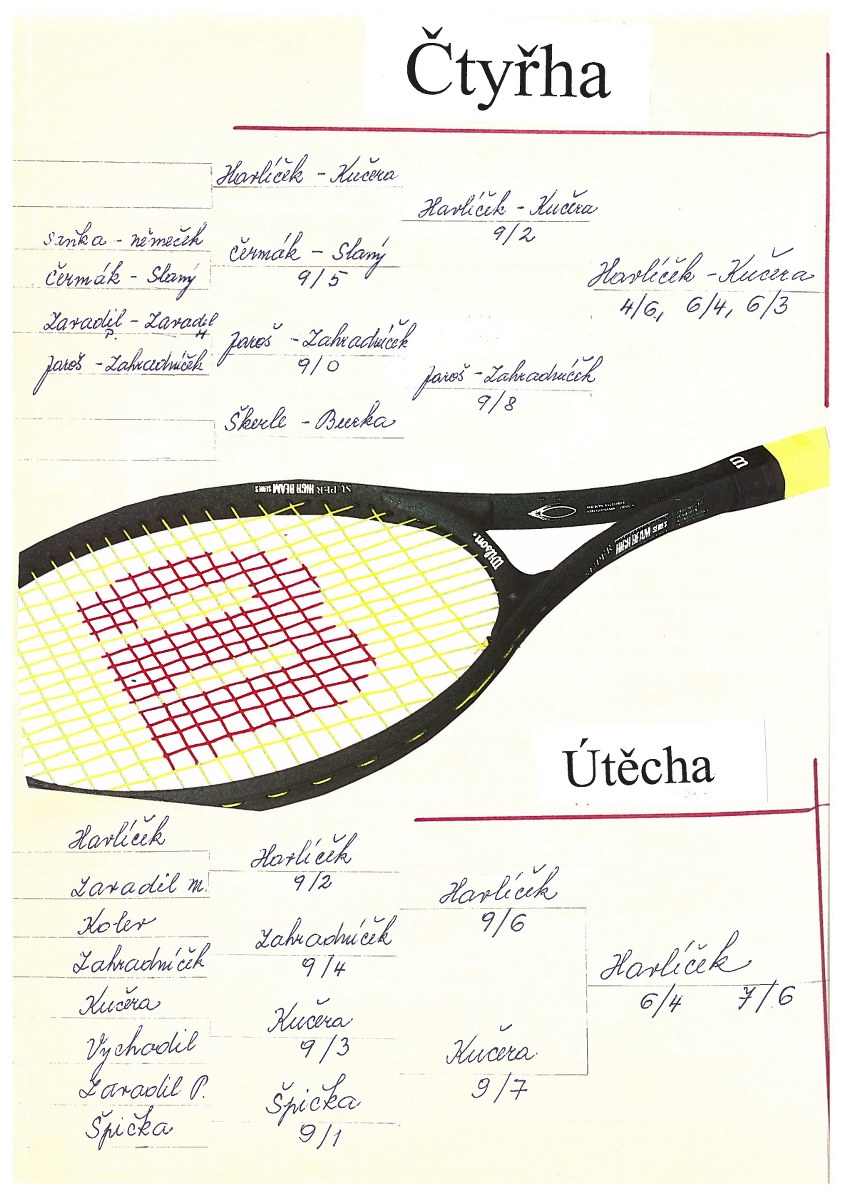 Čtyřha
Havlíček - Kučera
Havlíček - Kučera
9/2
němeček
Čermák - Slaný
9/5
Čermák - Slaný
Havlíček - Kučera
4/6, 6/4, 6/3
Zavadil P. - Zavadil M
Jaroš - Zahradníček
9/0
Jaroš - Zahradníček
Jaroš - Zahradníček
9/8
Škerle - Burka
SUPER HIGH BEAM SERIES
W
Wilson.
SUPER HIGH BEAM SERIES
Útěcha
Havlíček
Havlíček
9/2
Zavadil M.
Havlíček
9/6
Kolev
Zahradníček
9/4
Zahradníček
Havlíček
6/4 7/6
Kučera
Kučera
9/3
Vychodil
Kučera
9/7
Zavadil P.
Špička
9/1
Špička